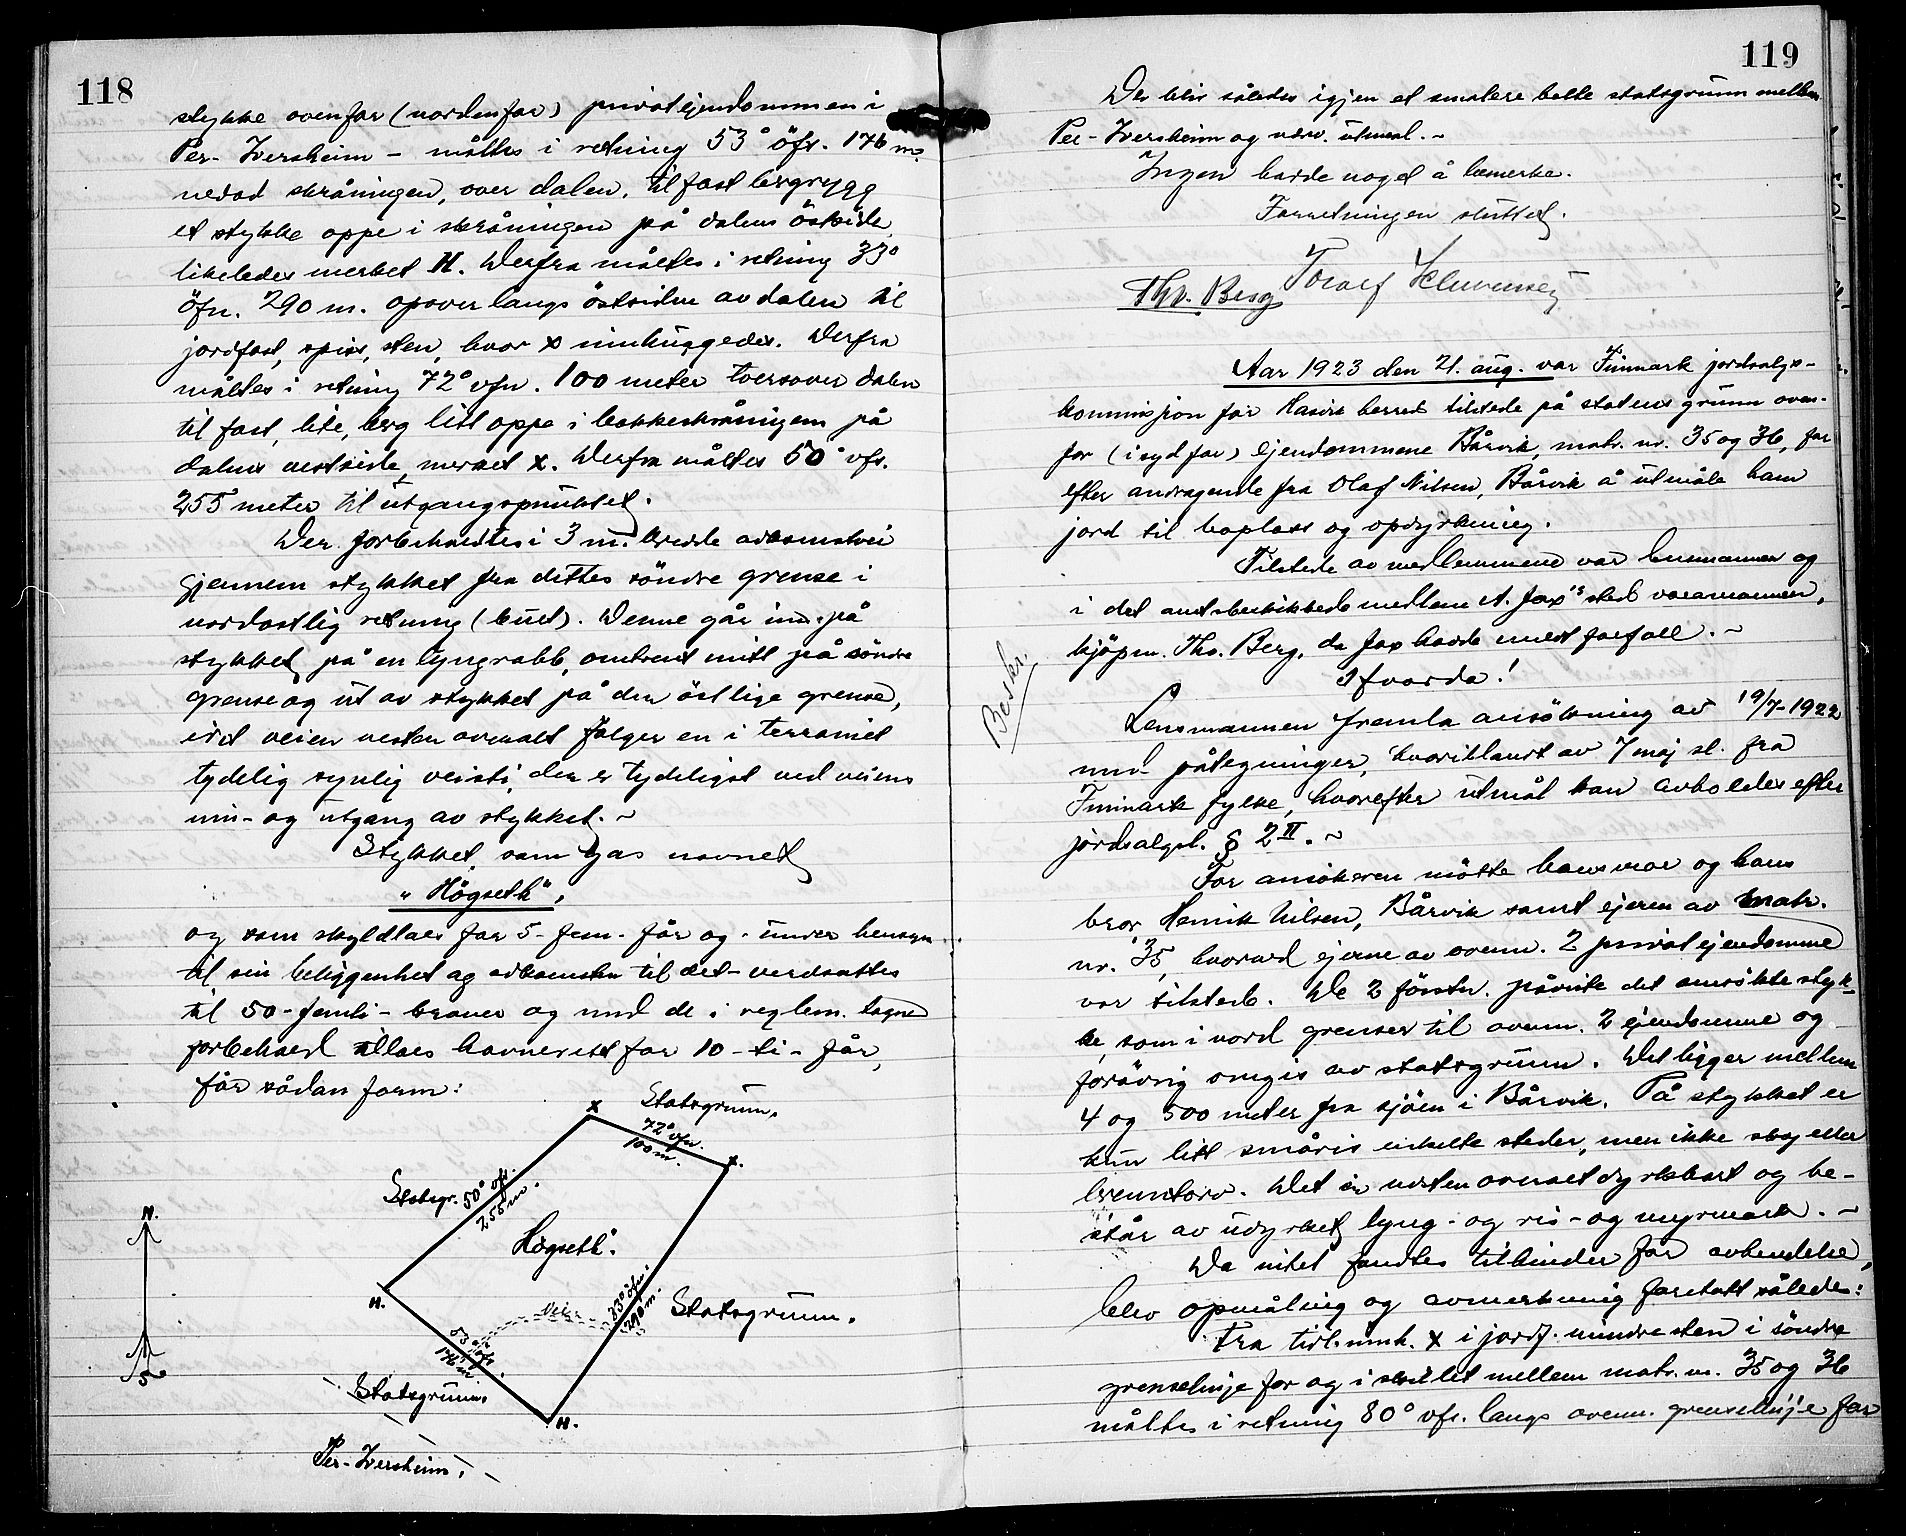 118
stykke ovenfor (nordenfor) privatejendommen i
Per-Iversheim – måltes i retning 53° öfs. 176 m.
nedad skråningen, over dalen, til fast bergrygg
et stykke oppe i skråningen på dalens östside,
likeledes merket H. Derfra måltes i retning 33°
öfn. 290 m. opover langs östsiden av dalen til
jordfast, spiss, sten, hvor x innhuggedes. Derfra
måltes i retning 72° vfn. 100 meter tversover dalen
til fast, lite, berg litt oppe i bakkeskråningen på
dalens vestside, merket x. Derfra måltes 50° vfs.
255 meter til utgangspunktet.
Der forbeholdtes i 3 m. bredde adkomstvei
gjennem stykket fra dettes söndre grense i
nordostlig retning (buet). Denne går inn på
stykket på en lyngrabb, omtrent mitt på söndre
grense og ut av stykket på den östlige grense,
idet veien nesten overalt følger en i terrænet
tydelig synlig veisti, der er tydeligst ved veiens
inn- og utgang av stykket. ~
Stykket, som gas navnet
"Högseth",
og som skyldlaes for 5 - fem - får og - under hensyn
til sin beliggenhet og adkomsten til det - verdsattes
til 50 - femti - kroner og med de i reglem. tagne
forbehold tillaes havneret for 10 - ti - får,
får sådan form:
x
Statsgrunn.
72° vfn.
100 m.
x.
Statsgr. 50° vfs.
255 m.
N.
Högseth.
H.
33° öfn.
290 m.
Vei
Statsgrunn.
53° öfs.
176 m.
S.
Statsgrunn.
H.
Per-Iversheim.
119
Der blir således igjen et smalere belte statsgrunn mellem
Per-Iversheim og nærv. utmål. ~
Ingen hadde noget å bemerke.
Forretningen sluttet.
Tho. Berg
Aar 1923 den 21. aug. var Finmark jordsalgs-
kommisjon for Hasvik herred tilstede på statens grunn oven-
for (i syd for) ejendommene Bårvik, matr. nr. 35 og 36, for
efter andragende fra Olaf Nilsen, Bårvik å utmåle ham
jord til boplass og opdyrkning.
Tilstede av medlemmene var lensmannen og
i det amtsbeskikkede medlem A. Fox's sted varamannen,
kjöpm. Tho. Berg, da Fox hadde meldt forfall. ~
Beskr.
Ifvorda!
Lensmannen fremla ansökning av 19/7-1922
med påtegninger, hvoriblandt av 7 maj sl. fra
Finmark fylke, hvorefter utmål kan avholdes efter
jordsalgsl. § 2 II. ~
For ansökeren mötte hans mor og hans
bror Henrik Nilsen, Bårvik samt ejeren av matr.
nr. 35, hvorved ejerne av ovenn. 2 privatejendomme
var tilstede. De 2 förstn. påviste det ansökte styk-
ke, som i nord grenser til ovenn. 2 ejendomme og
forövrig omgis av statsgrunn. Det ligger mellem
4 og 500 meter fra sjöen i Bårvik. På stykket er
kun litt småris enkelte steder, men ikke skog eller
brenntorv. Det er nesten overalt dyrkbart og be-
står av udyrket lyng- og ris- og myrmark. ~
Da intet fandtes til hinder for avhendelse,
blev opmåling og avmerkning foretatt således:
Fra tidl. innh. x i jordf. mindre sten i söndre
grenselinje for og i skillet mellem matr. nr. 35 og 36
måltes i retning 80° vfs. langs ovenn. grenselinje for